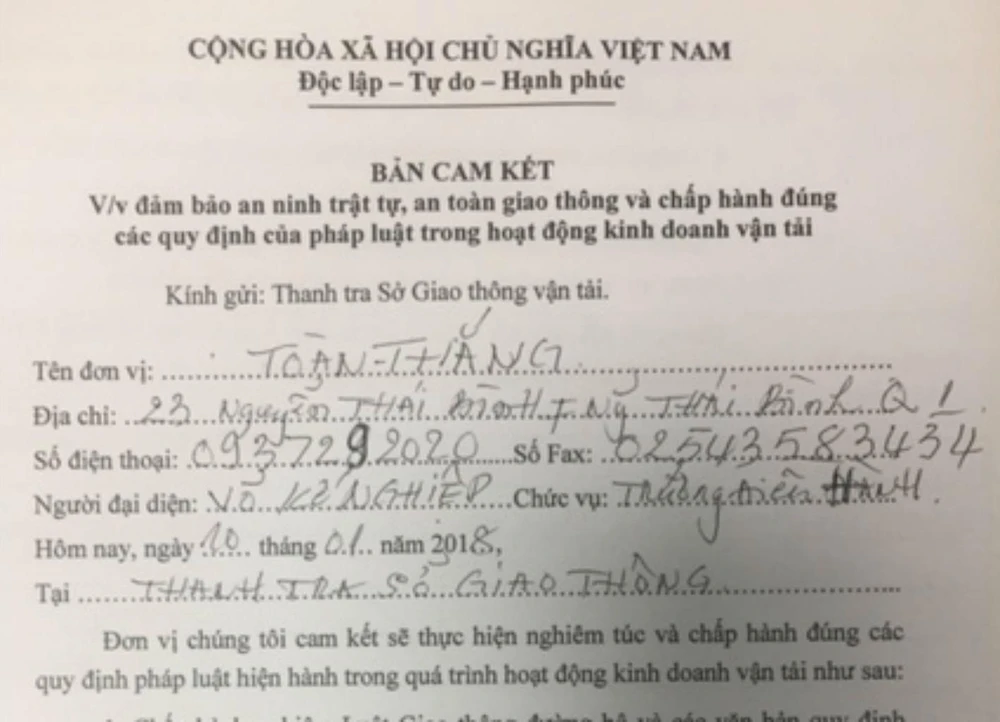 CỘNG HÒA XÃ HỘI CHỦ NGHĨA VIỆT NAM
Độc lập – Tự do – Hạnh phúc
BẢN CAM KẾT
V/v đảm bảo an ninh trật tự, an toàn giao thông và chấp hành đúng
các quy định của pháp luật trong hoạt động kinh doanh vận tải
Kính gửi: Thanh tra Sở Giao thông vận tải.
Tên đơn vị: TOÀN THẮNG
Địa chỉ: 23 Nguyễn THÁI BÌNH Ng THÁI Bình Q 1
Số điện thoại: 0937292020 Số Fax: 02543583434
Người đại diện: VÕ KẾ NGHIỆP Chức vụ: Trưởng điều HÀNH.
Hôm nay, ngày 10 tháng 01 năm 2018,
Tại THANH TRA SỞ GIAO THÔNG
Đơn vị chúng tôi cam kết sẽ thực hiện nghiêm túc và chấp hành đúng các
quy định pháp luật hiện hành trong quá trình hoạt động kinh doanh vận tải như sau: